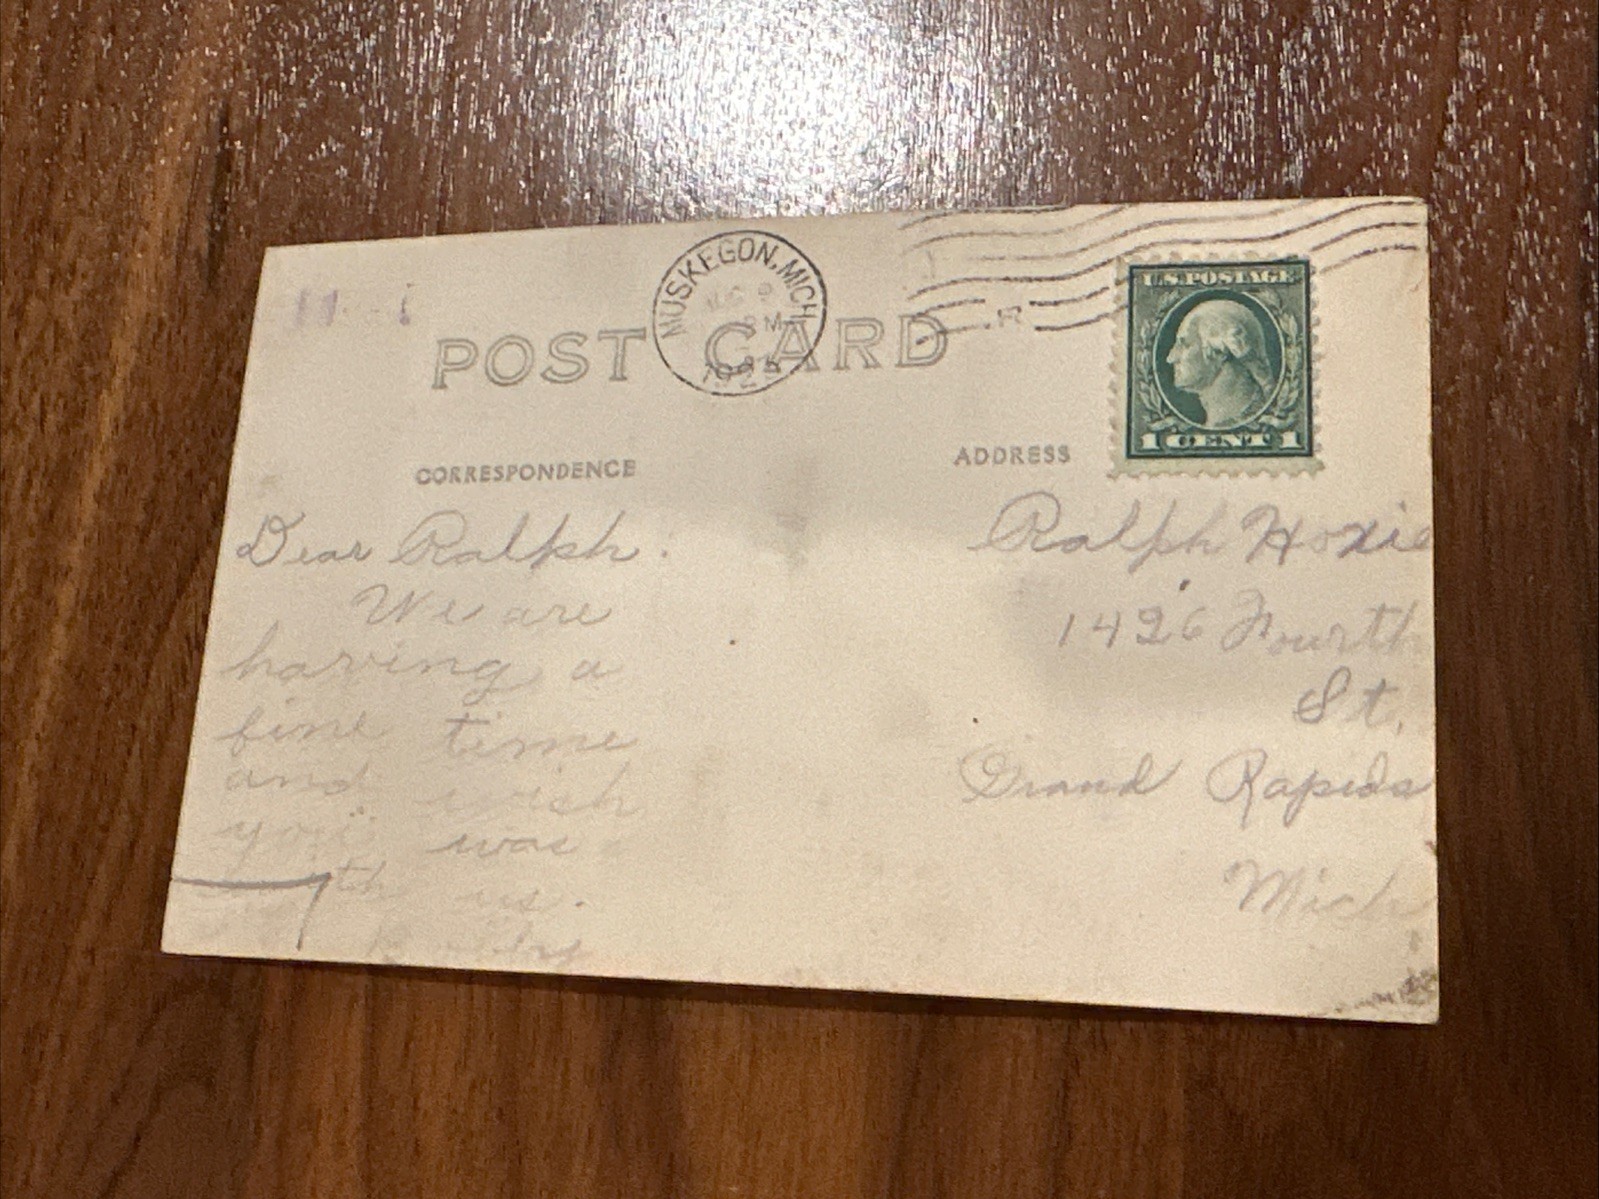 MUSKEGON, MICH
9
M
192
POST CARD
U.S. POSTAGE
1 CENT 1
CORRESPONDENCE
ADDRESS
Dear Ralph.
We are
having a
fine time
and wish
you was
with us.
Ralph Hoxie
1426 Fourth
St.
Grand Rapids
Mich